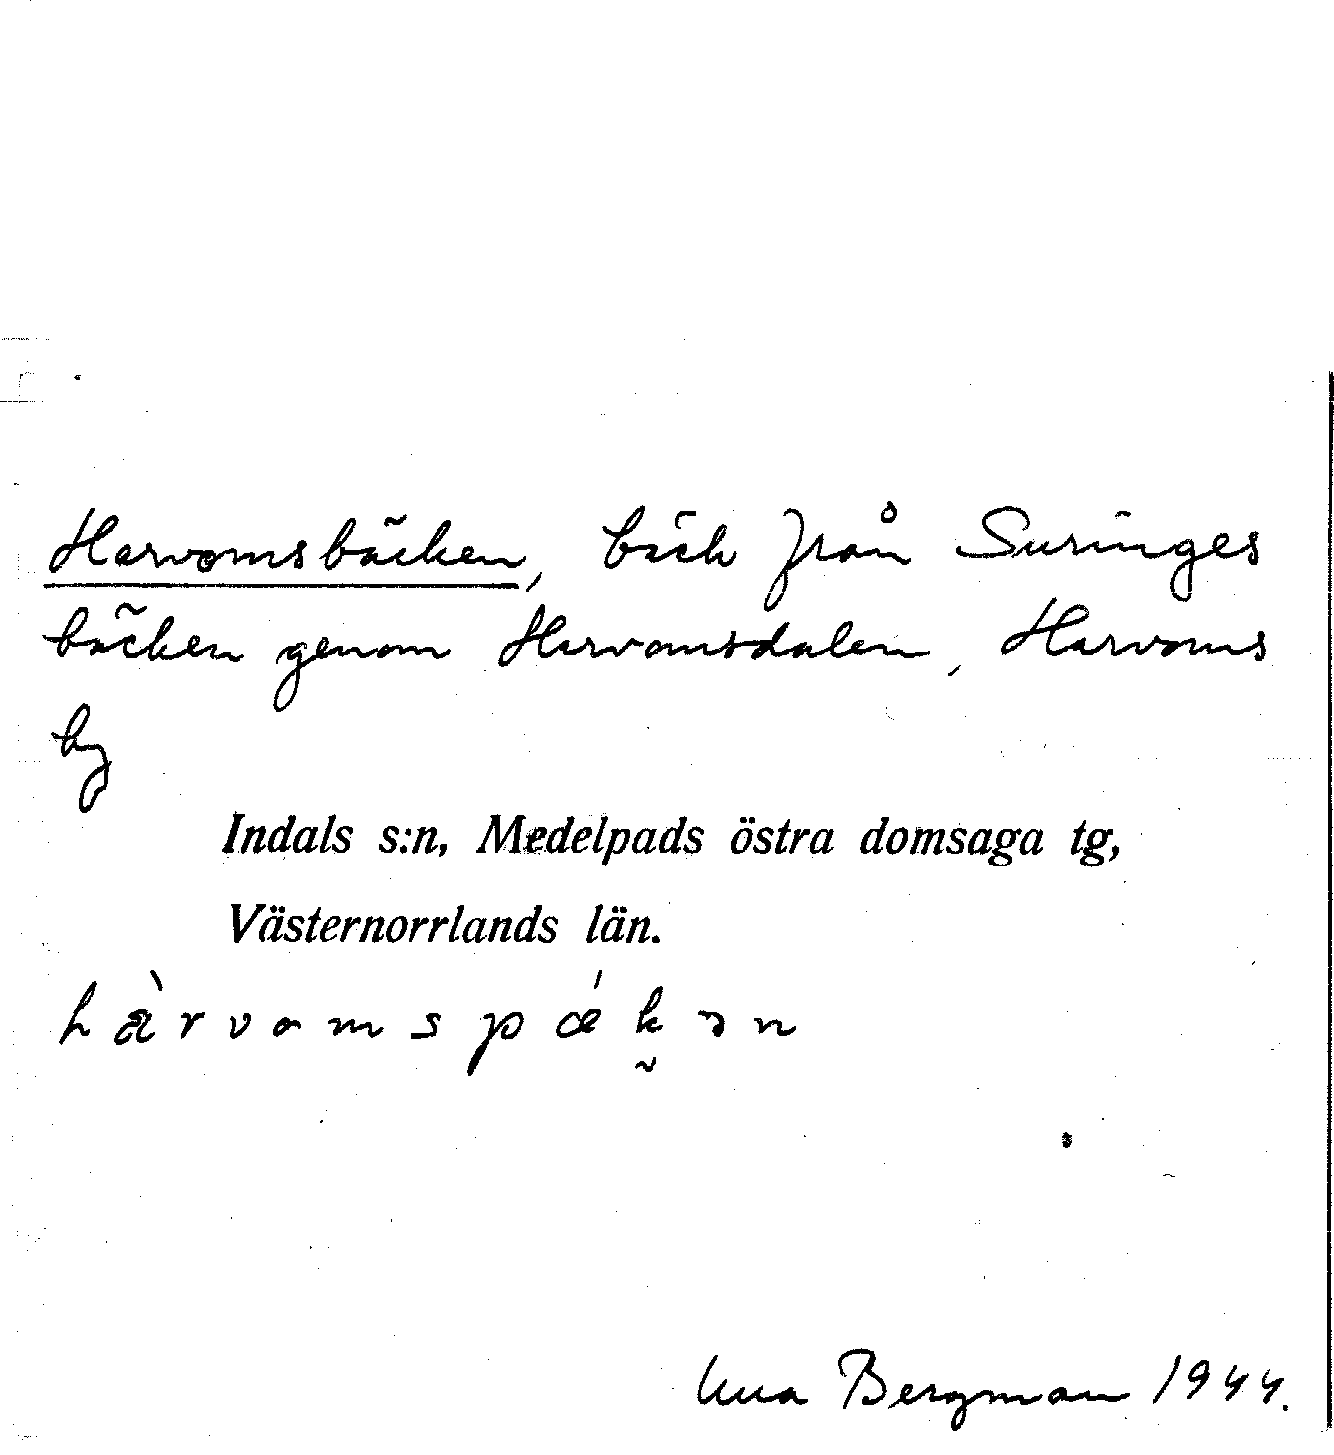 Harvomsbäcken, bäck från Suringes
bäcken genom Harvomsdalen, Harvoms
by
Indals s:n, Medelpads östra domsaga tg,
Västernorrlands län.
hàrvomspǽk̰ən
Bergman 1944.